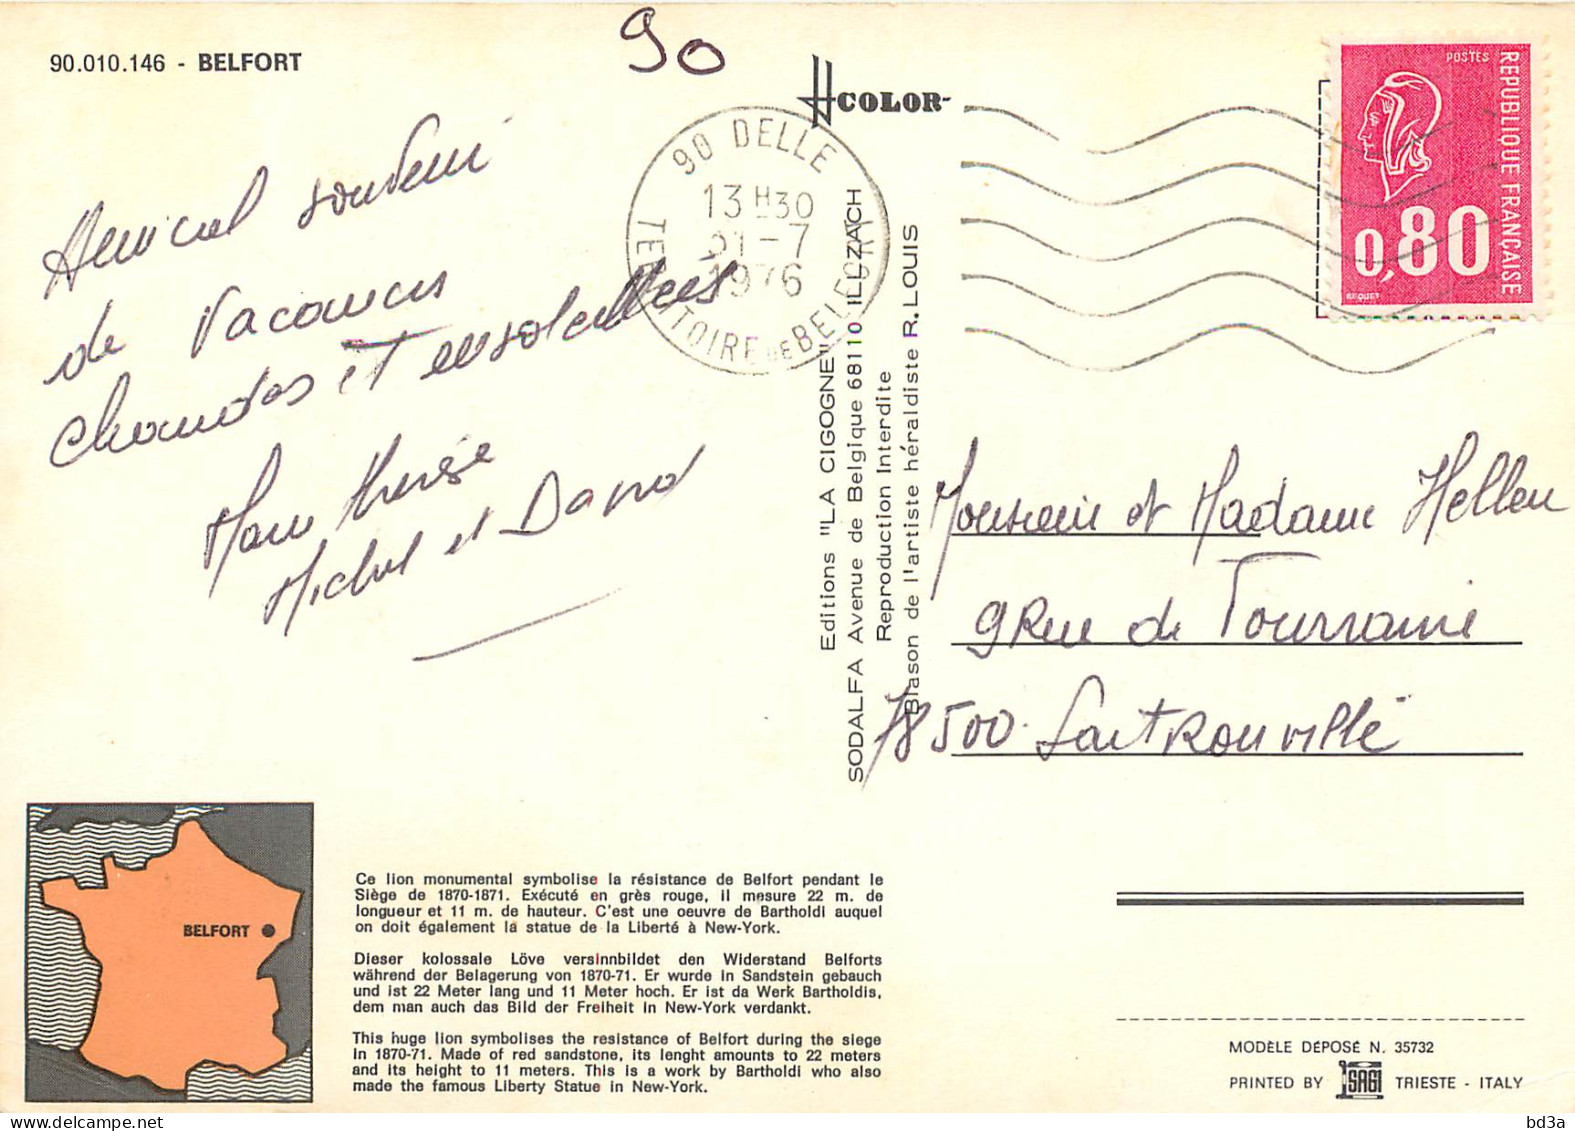 90.010.146 - BELFORT
90
COLOR-
Amical souvenir
de vacances
chaudes et ensoleillées
Marie Thérèse
Michel et David
90 DELLE
13 H 30
31-7
1976
TERRITOIRE DE BELFORT
POSTES
REPUBLIQUE FRANÇAISE
0,80
BEQUET
Editions "LA CIGOGNE"
SODALFA Avenue de Belgique 68110 ILLZACH
Reproduction Interdite
Blason de l'artiste héraldiste R. LOUIS
Monsieur et Madame Helleu
9 Rue de Tourraine
78500 Sartrouville
BELFORT
Ce lion monumental symbolise la résistance de Belfort pendant le
Siège de 1870-1871. Exécuté en grès rouge, il mesure 22 m. de
longueur et 11 m. de hauteur. C'est une oeuvre de Bartholdi auquel
on doit également la statue de la Liberté à New-York.
Dieser kolossale Löve versinnbildet den Widerstand Belforts
während der Belagerung von 1870-71. Er wurde in Sandstein gebauch
und ist 22 Meter lang und 11 Meter hoch. Er ist da Werk Bartholdis,
dem man auch das Bild der Freiheit in New-York verdankt.
This huge lion symbolises the resistance of Belfort during the siege
in 1870-71. Made of red sandstone, its lenght amounts to 22 meters
and its height to 11 meters. This is a work by Bartholdi who also
made the famous Liberty Statue in New-York.
MODÈLE DÉPOSÉ N. 35732
PRINTED BY SAGI TRIESTE - ITALY
www.delcampe.net
bd3a